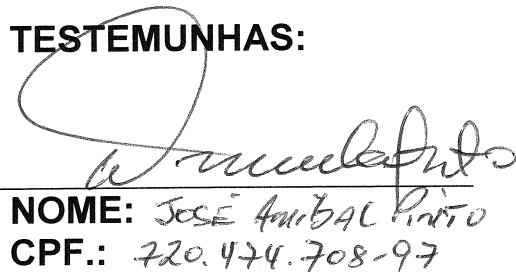 TESTEMUNHAS:
NOME: JOSÉ Aníbal Pinto
CPF.: 720.474.708-97